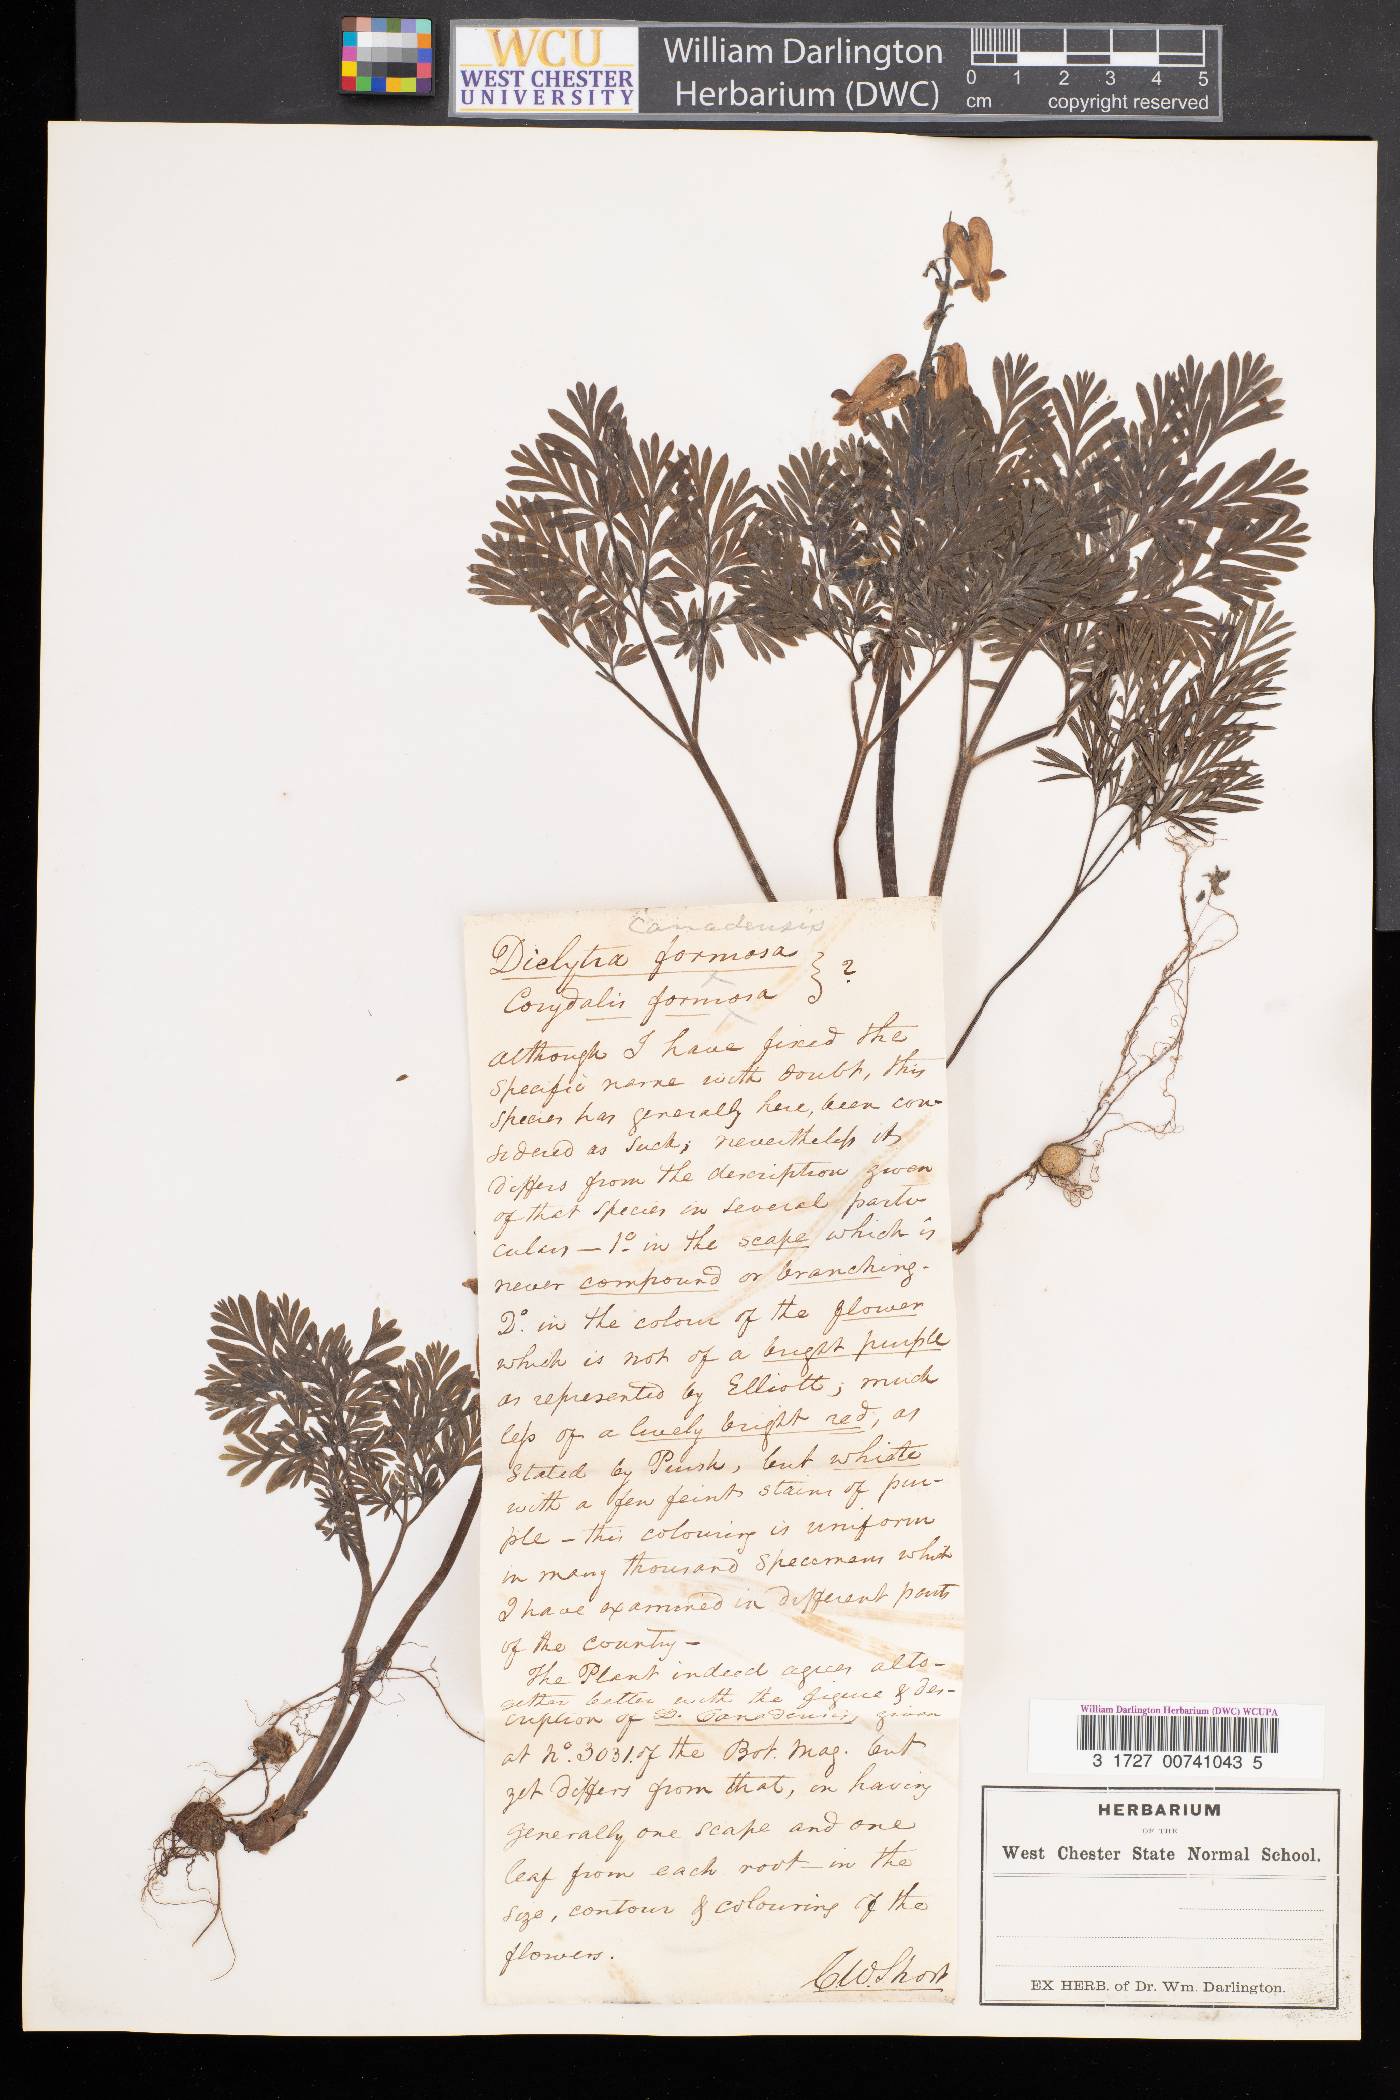 WCU
WEST CHESTER
UNIVERSITY
William Darlington
Herbarium (DWC)
0 1 2 3 4 5
cm copyright reserved
Canadensis
Dielytra formosa
Corydalis formosa } ?
although I have fixed the
specific name with doubt, this
species has generally here, been con-
sidered as such; nevertheless it
differs from the description given
of that species in several parti
culars — 1o. in the scape which is
never compound or branching.
2o. in the colour of the flower
which is not of a bright purple
as represented by Elliott; much
less of a lively bright red, as
stated by Pursh, but whiete
with a few feint stains of pur-
ple — this colouring is uniform
in many thousand specemens which
I have examined in different parts
of the country —
The Plant indeed agrees alto-
gether better with the figure & des-
cription of D. Canadensis, given
at No. 3031. of the Bot. Mag. but
yet differs from that, in having
generally one scape and one
leaf from each root — in the
size, contour & colouring of the
flowers.
C.W. Short
William Darlington Herbarium (DWC) WCUPA
3 1727 00741043 5
HERBARIUM
OF THE
West Chester State Normal School.
EX HERB. of Dr. Wm. Darlington.